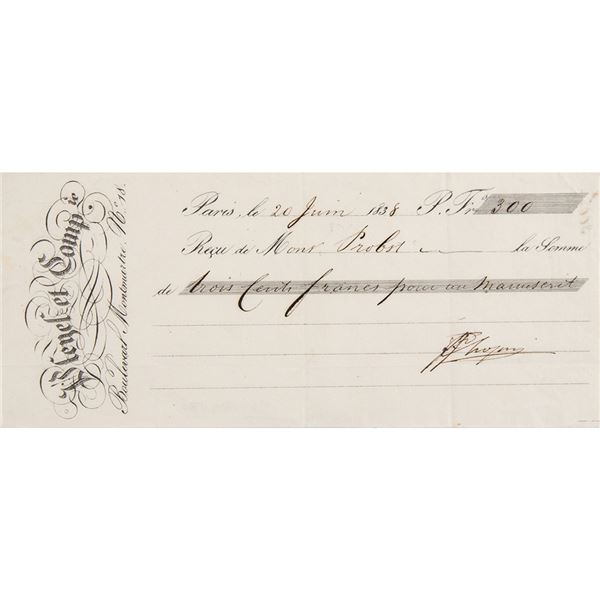 Pleyel et Comp.ie
Boulevart Montmartre, No. 18.
Paris, le 20 Juin 1838 P. Fr. 300
Reçu de Mons. Probst la Somme
de trois Cents francs pour un Manuscrit
FF Chopin